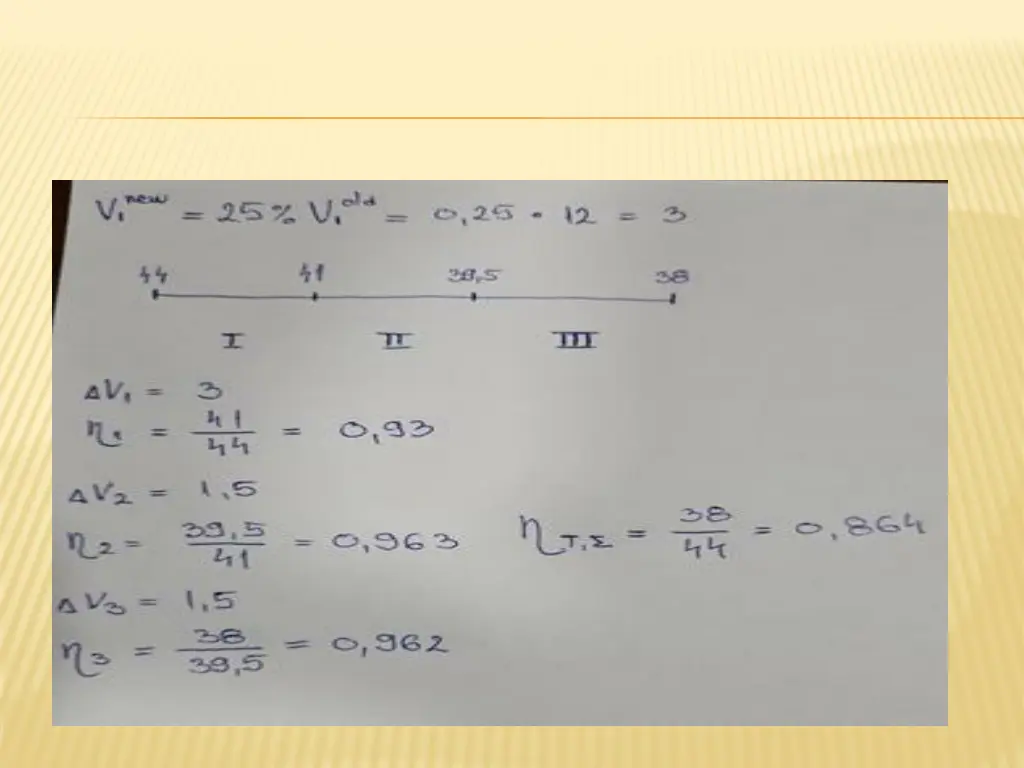 V₁ⁿᵉʷ = 25% V₁ᵒˡᵈ = 0,25 · 12 = 3
44 41 39,5 38
I II III
ΔV₁ = 3
η₁ = 41/44 = 0,93
ΔV₂ = 1,5
η₂ = 39,5/41 = 0,963
η_T,Σ = 38/44 = 0,864
ΔV₃ = 1,5
η₃ = 38/39,5 = 0,962